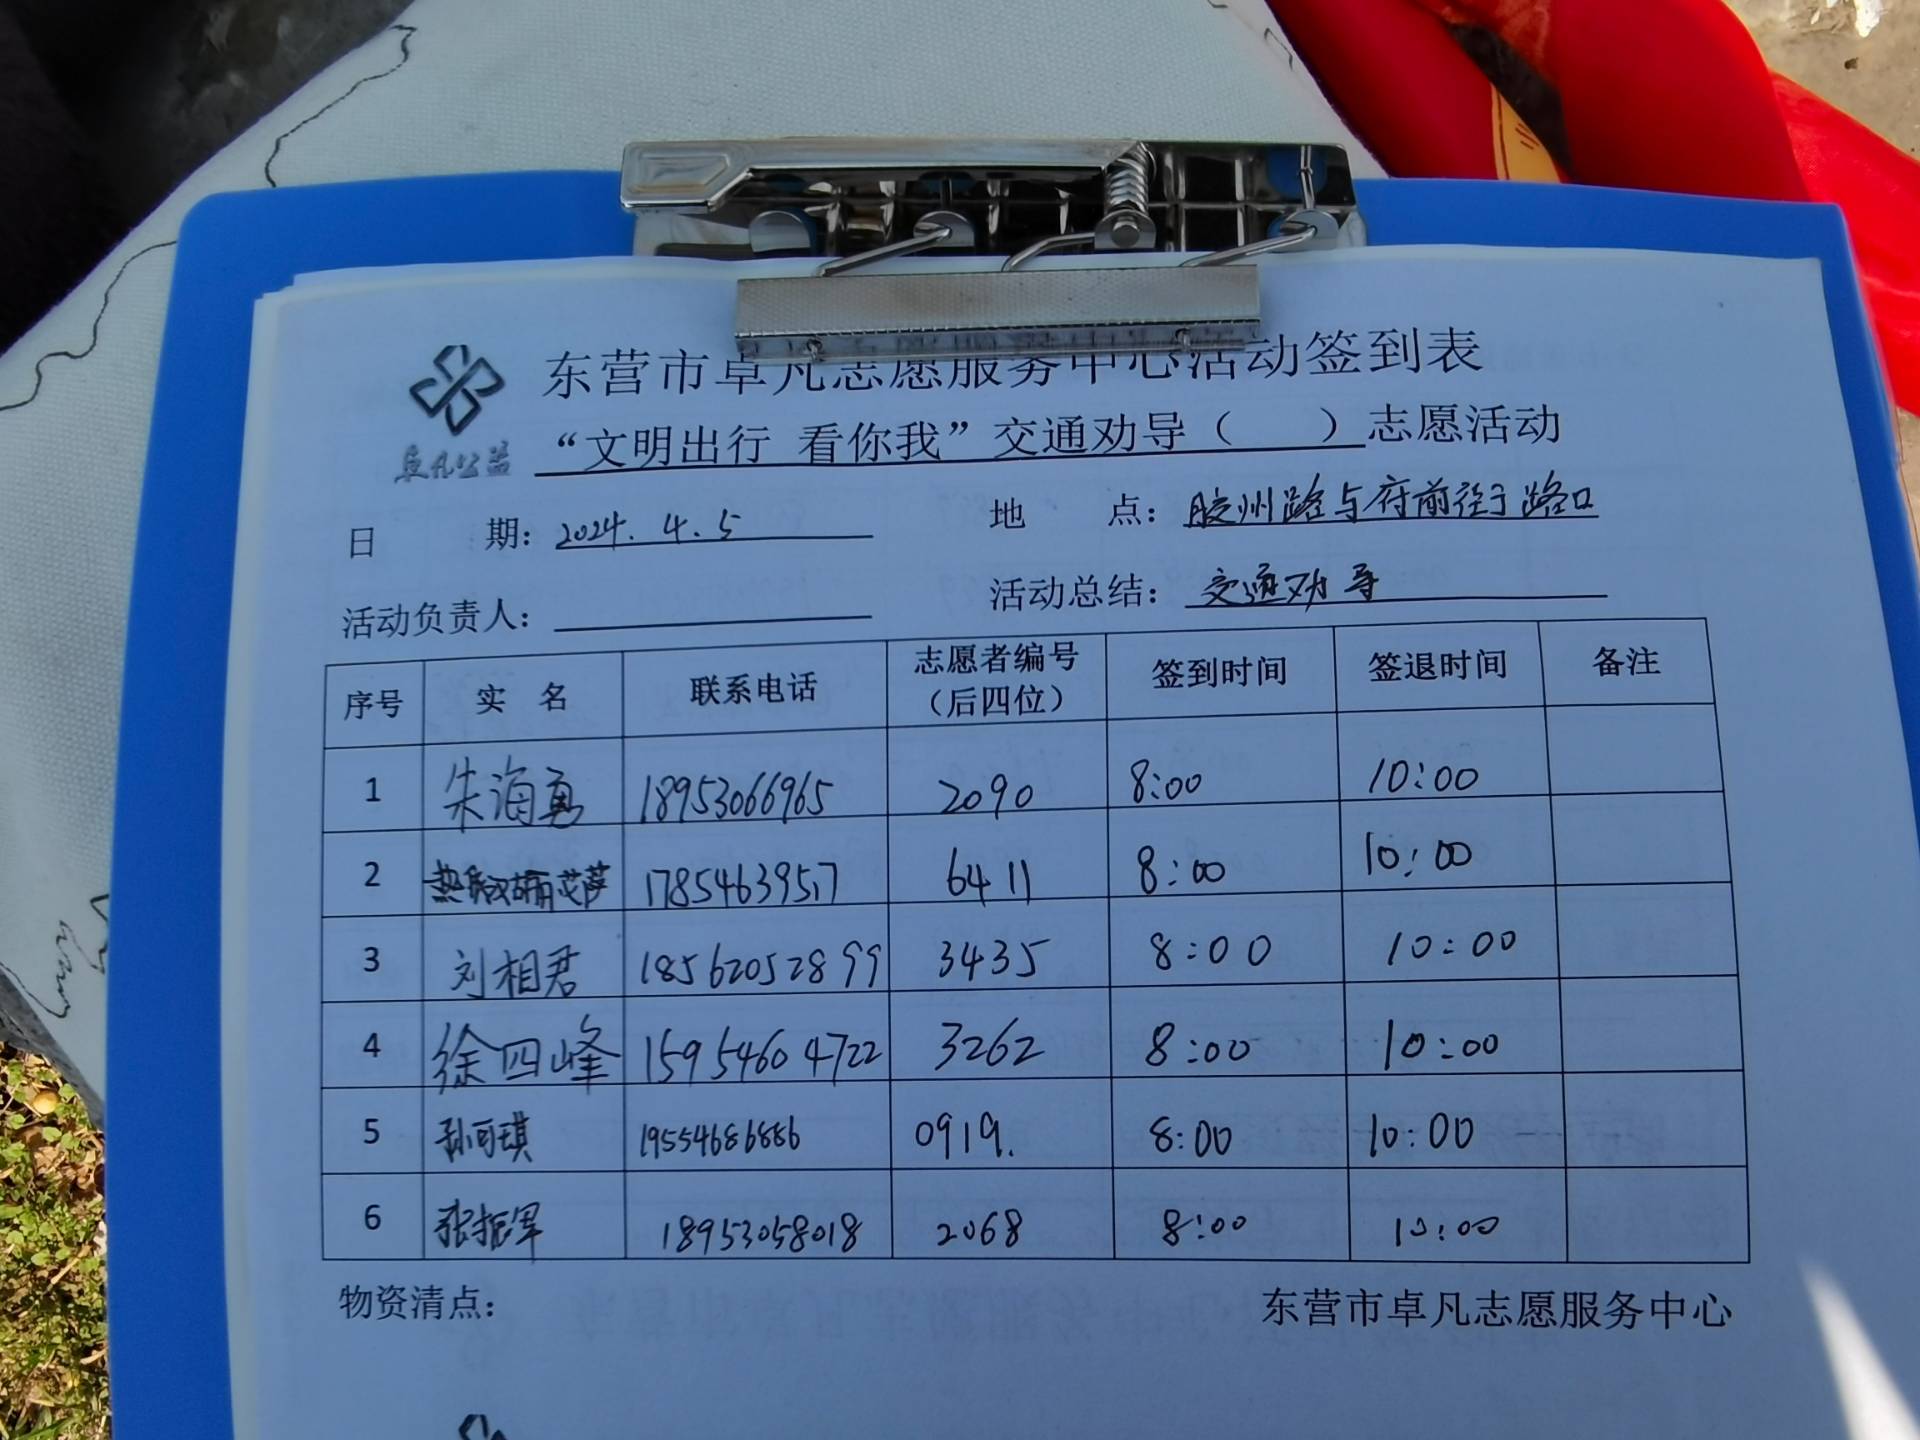 东营市卓凡志愿服务中心活动签到表
卓凡公益
“文明出行 看你我”交通劝导（ ）志愿活动
日 期：2024.4.5 地 点：胶州路与府前街路口
活动负责人： 活动总结：交通劝导
序号 实 名 联系电话 志愿者编号（后四位） 签到时间 签退时间 备注
1 朱海勇 18953066965 2090 8:00 10:00
2 17854639517 6411 8:00 10:00
3 刘相君 18562052899 3435 8:00 10:00
4 徐四峰 15954604722 3262 8:00 10:00
5 孙可琪 19554686886 0919. 8:00 10:00
6 张振军 18953058018 2068 8:00 10:00
物资清点： 东营市卓凡志愿服务中心